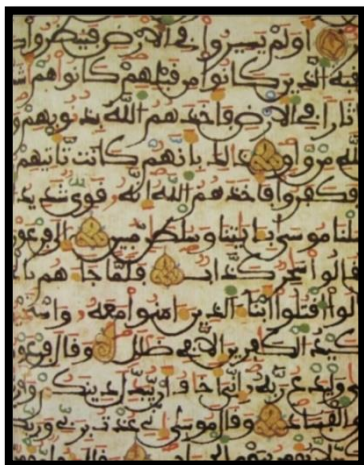 اولم يسيروا في الارض فينظروا
ـبة الذين كانوا من قبلهم كانوا هم اشـ
ـثارا في الارض فاخذهم الله بذنوبهم و
الله من واق ذلك بانهم كانت تاتيهم
فكفروا فاخذهم الله انه قوي شديد
ـلنا موسى بايتنا وسلطن مبين الى فرعو
ـالوا سحر كذاب فلما جاءهم با
ـلوا اقتلوا ابناء الذين امنوا معه واستـ
كيد الكفرين الا في ضلل وقال فرعو
وليدع ربه اني اخاف ان يبدل دينكم
الفساد وقال موسى اني عذت بربي وربكـ